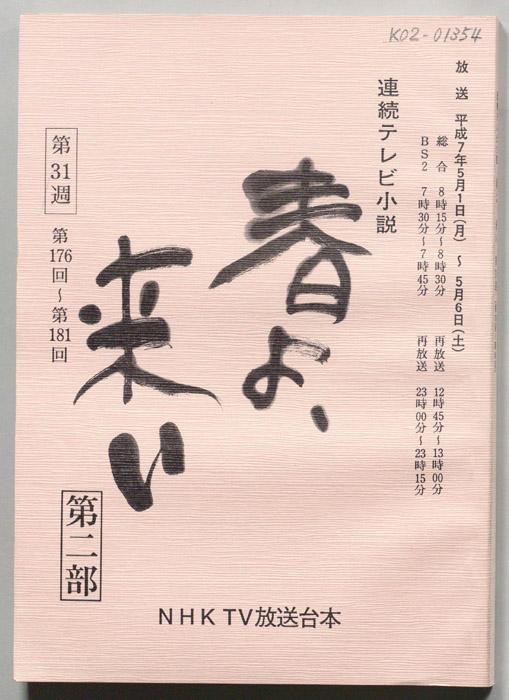 K02-01354
放送 平成7年5月1日(月)~5月6日(土)
総合 8時15分~8時30分 再放送 12時45分~13時00分
BS2 7時30分~7時45分 再放送 23時00分~23時15分
連続テレビ小説
春よ、
来い
第31週
第176回~第181回
第二部
NHK TV放送台本